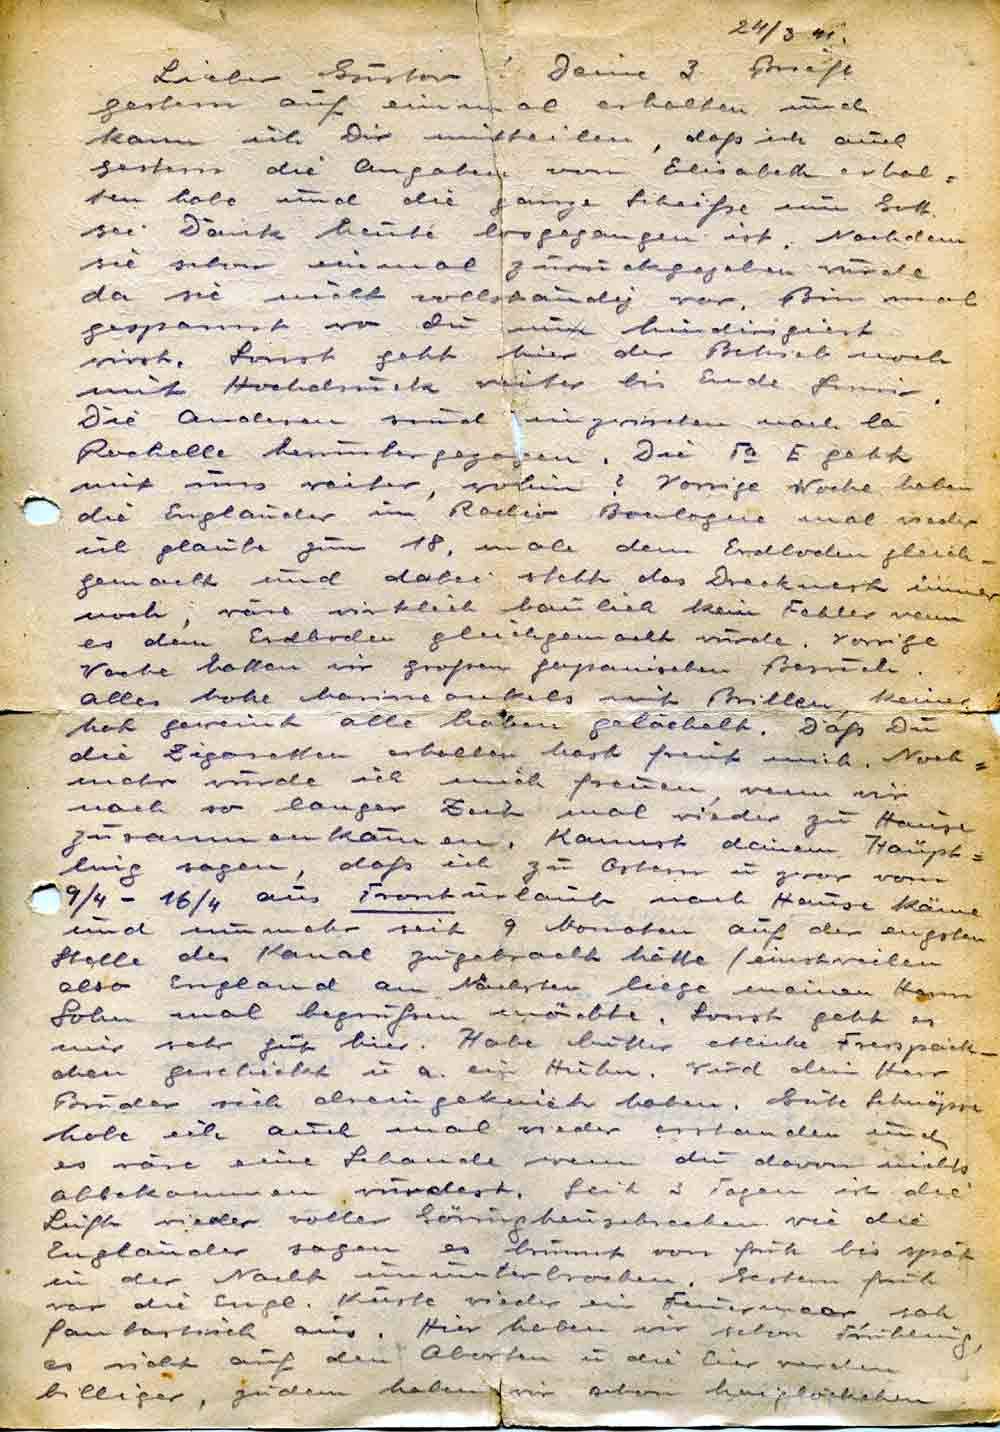 24/3 41.
Lieber Gustav! Deine 3 Briefe
gestern auf einmal erhalten und
kann ich Dir mitteilen, daß ich auch
gestern die Angaben von Elisabeth erhal=
ten habe und die ganze Scheiße nun Gott
sei Dank heute losgegangen ist. Nachdem
sie schon einmal zurückgegeben wurde
da sie nicht vollständig war. Bin mal
gespannt wo Du nun hindirigiert
wirst. Sonst geht hier der Betrieb noch
mit Hochdruck weiter bis Ende Juni.
Die Anderen sind inzwischen nach La
Rochelle heruntergezogen. Die Fa E geht
mit uns weiter, wohin? Vorrige Woche haben
die Engländer im Radio Boulogne mal wieder
ich glaube zum 18. male dem Erdboden gleich-
gemacht und dabei steht das Drecknest immer
noch, wäre wirklich baulich kein Fehler wenn
es dem Erdboden gleichgemacht würde. Vorrige
Woche hatten wir großen japanischen Besuch.
Alles hohe Marineonkels mit Brillen, keiner
hat geweint alle haben gelächelt. Daß Du
die Zigaretten erhalten hast freut mich. Noch=
mehr würde ich mich freuen, wenn wir
nach so langer Zeit mal wieder zu Hause
zusammenkämen. Kannst deinem Häupt=
ling sagen, daß ich zu Ostern u zwar vom
9/4 - 16/4 aus Fronturlaub nach Hause käme
und nunmehr seit 9 Monaten auf der engsten
Stelle des Kanal zugebracht hätte /einstweilen
also England am Nächsten liege meinen Herrn
Sohn mal begrüßen möchte. Sonst geht es
mir sehr gut hier. Habe Mutter etliche Fresspäck-
chen geschickt u a. ein Huhn. Wird dein Herr
Bruder sich dreingekniet haben. Gute Schnäpse
habe ich auch mal wieder erstanden und
es wäre eine Schande wenn du davon nichts
abbekommen würdest. Seit 2 Tagen ist die
Luft wieder voller Göringheuschrecken wie die
Engländer sagen es brummt von früh bis spät
in der Nacht ununterbrochen. Gestern früh
war die Engl. Küste wieder ein Feuermeer sah
fantastisch aus. Hier haben wir schon Frühling,
es riecht auf den Aborten u die Eier werden
billiger, zudem haben wir schon Maiglöckchen